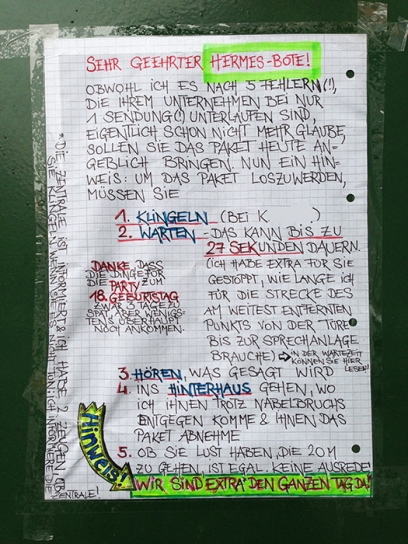 SEHR GEEHRTER HERMES-BOTE!
OBWOHL ICH ES NACH 5 FEHLERN(!),
DIE IHREM UNTERNEHMEN BEI NUR
1 SENDUNG(!) UNTERLAUFEN SIND,
EIGENTLICH SCHON NICHT MEHR GLAUBE,
SOLLEN SIE DAS PAKET HEUTE AN-
GEBLICH BRINGEN. NUN EIN HIN-
WEIS: UM DAS PAKET LOSZUWERDEN,
MÜSSEN SIE
1. KLINGELN (BEI K )
2. WARTEN - DAS KANN BIS ZU
27 SEKUNDEN DAUERN.
(ICH HABE EXTRA FÜR SIE
GESTOPPT, WIE LANGE ICH
FÜR DIE STRECKE DES
AM WEITEST ENTFERNTEN
PUNKTS VON DER TÜRE
BIS ZUR SPRECHANLAGE
BRAUCHE)
→ IN DER WARTEZEIT
KÖNNEN SIE HIER
LESEN!
DANKE, DASS
DIE DINGE FÜR
DIE ZUM
PARTY
18. GEBURTSTAG
ZWAR 3 TAGE ZU
SPÄT, ABER WENIGS-
TENS ÜBERHAUPT
NOCH ANKOMMEN.
3. HÖREN, WAS GESAGT WIRD
4. INS HINTERHAUS GEHEN, WO
ICH IHNEN TROTZ NABELBRUCHS
ENTGEGEN KOMME & IHNEN DAS
PAKET ABNEHME
5. OB SIE LUST HABEN, DIE 20M
ZU GEHEN, IST EGAL. KEINE AUSREDE!
Hinweis:
WIR SIND EXTRA DEN GANZEN TAG DA!
*DIE ZENTRALE IST INFORMIERT & ICH HABE 2 ZEUGEN, OB
SIE KLINGELN. WENN SIE ES NICHT TUN:
ZENTRALE!